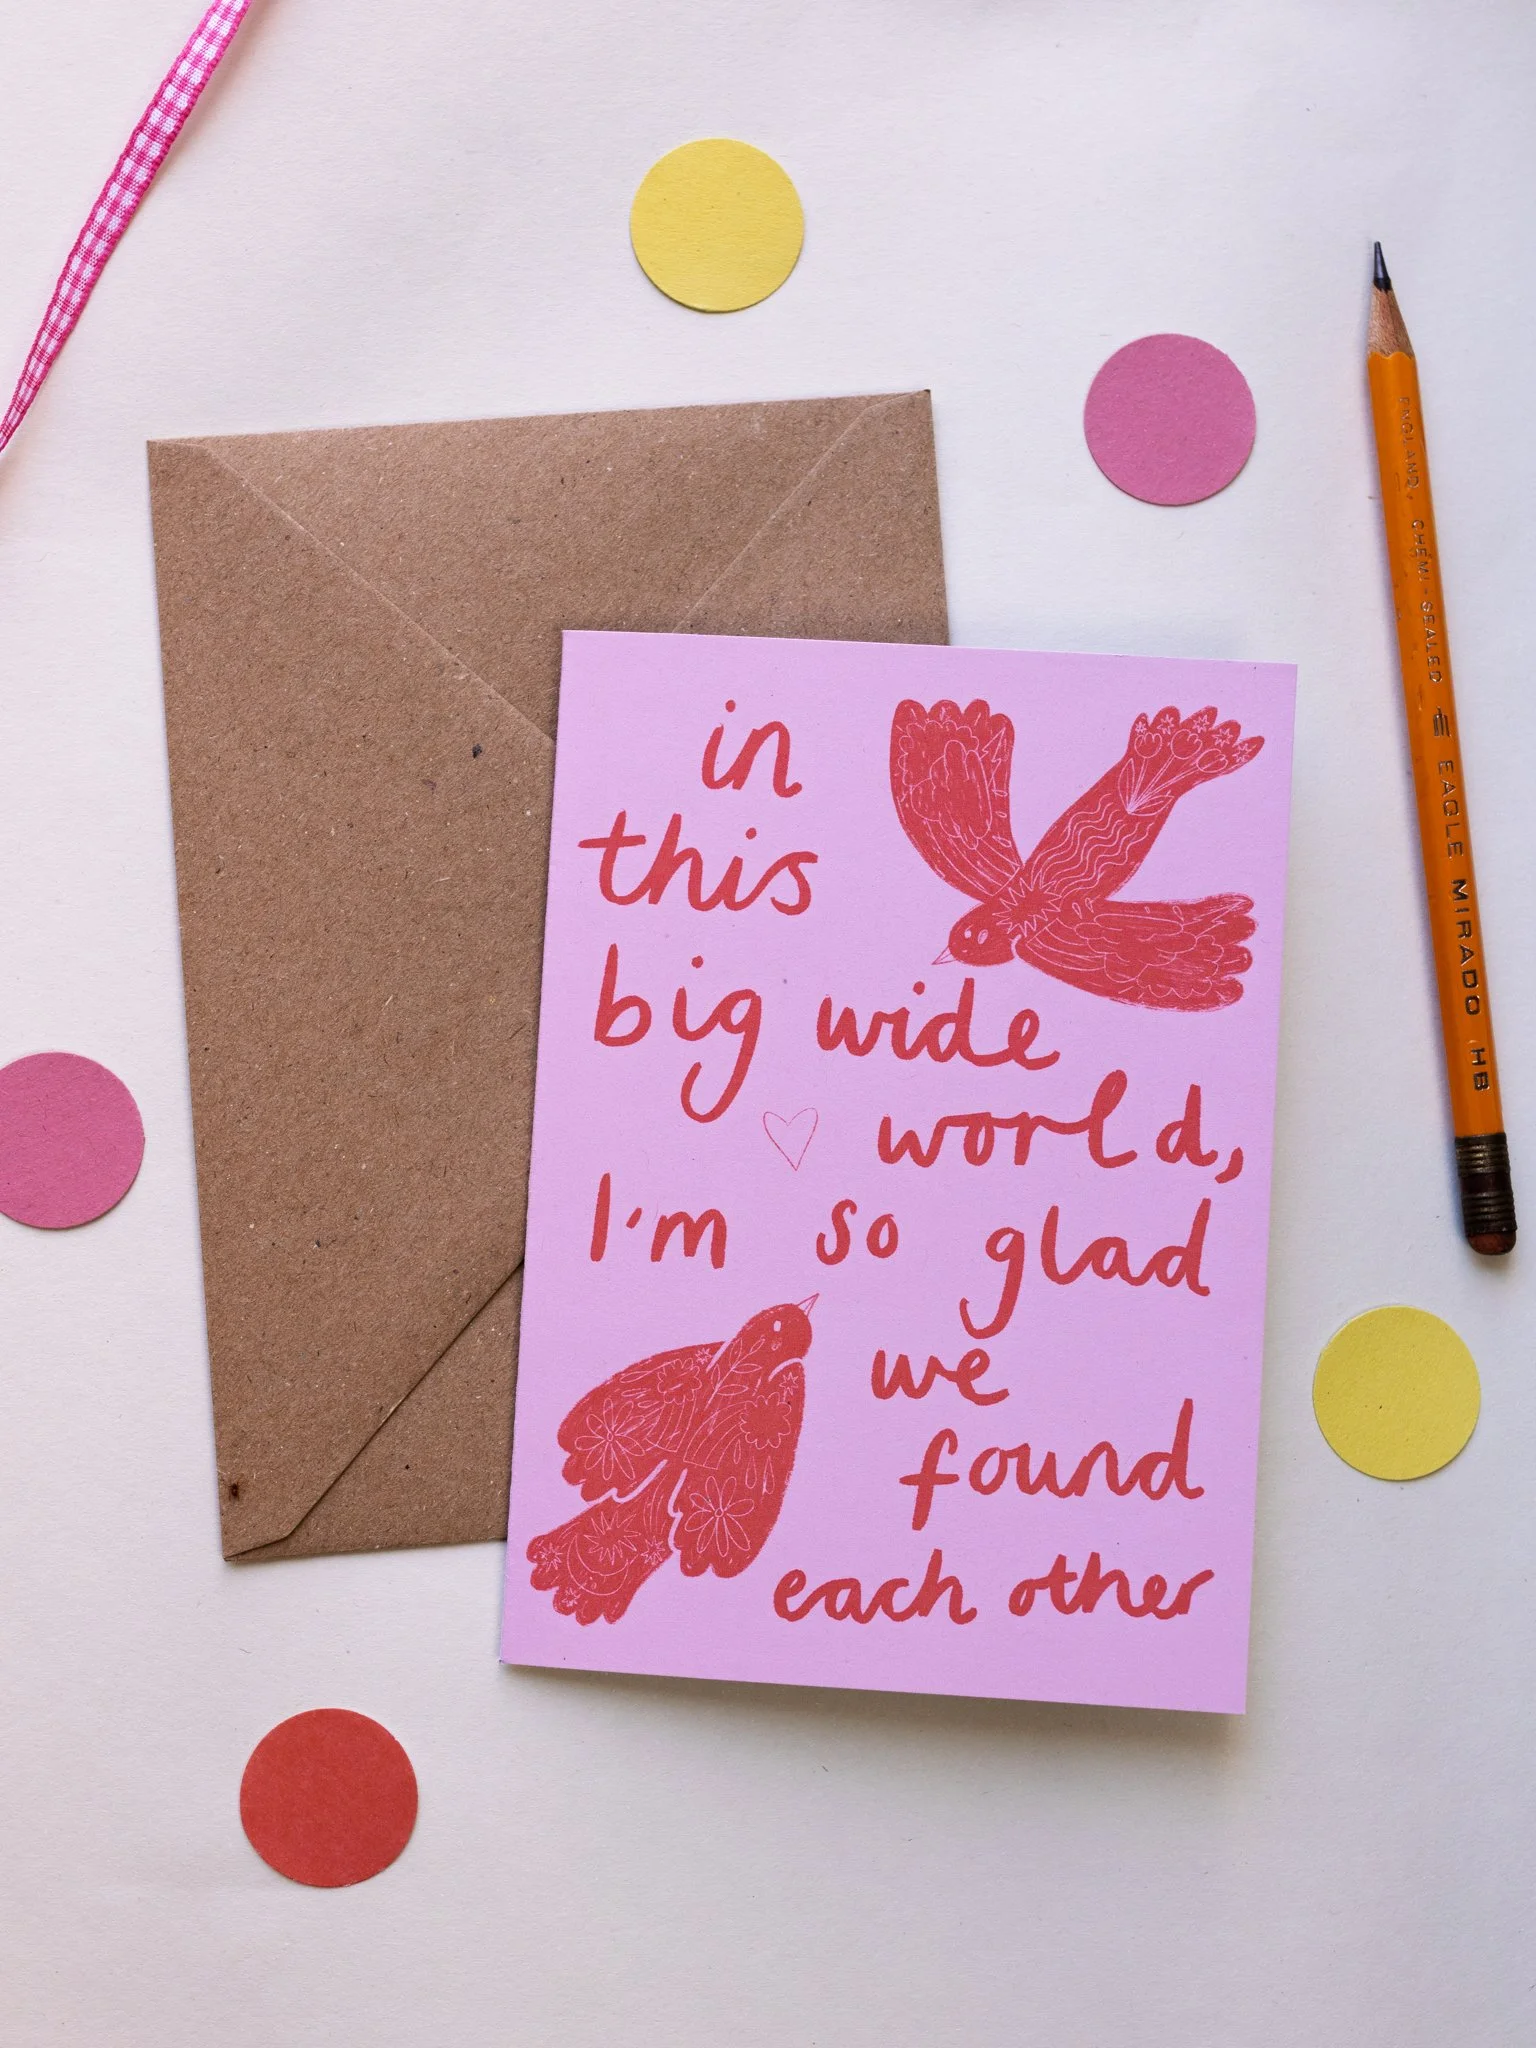 in
this
big wide
world,
I'm so glad
we
found
each other
ENGLAND. CHEMI-SEALED EAGLE MIRADO HB